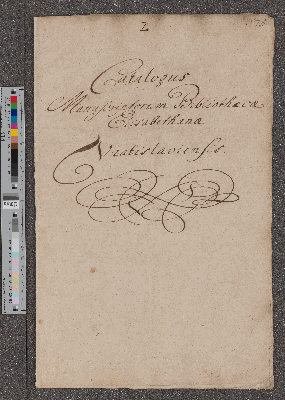 2
Catalogus
Manuscriptorum Bibliothecæ
Elisabethanæ
Vratislaviensis.